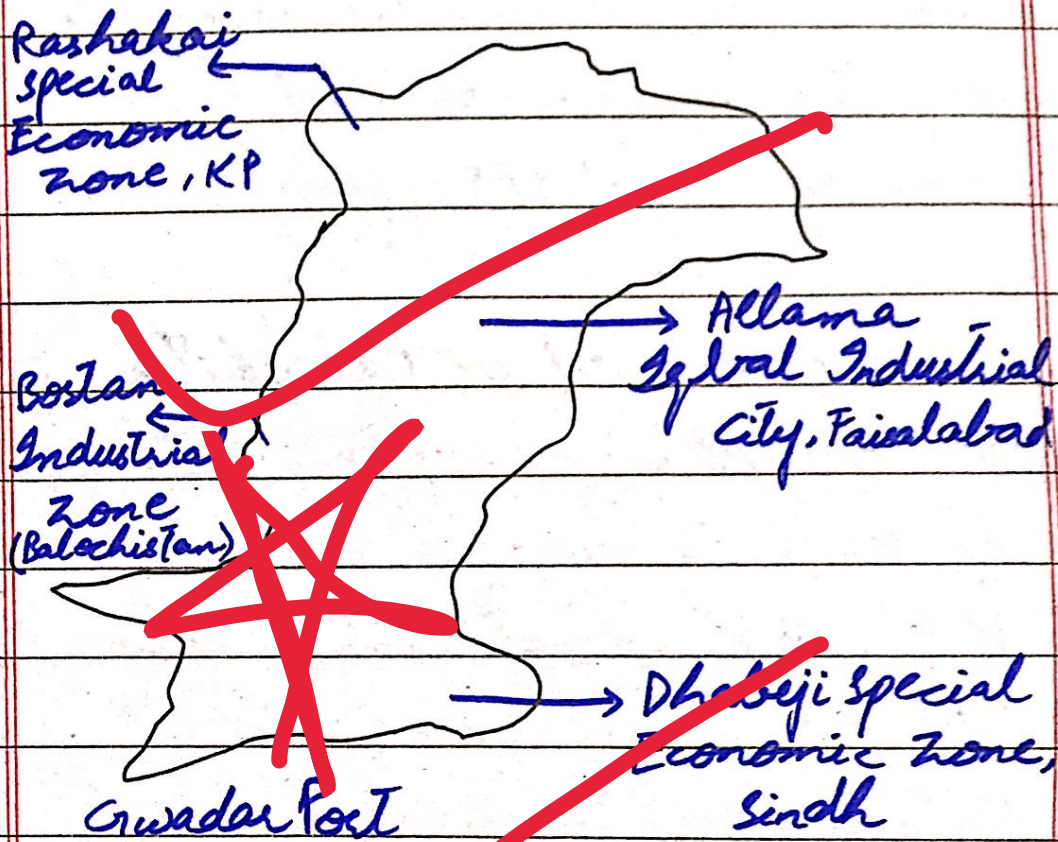 Rashakai
special
Economic
zone, KP
Allama
Iqbal Industrial
City, Faisalabad
Bostan
Industrial
zone
(Balochistan)
Dhabeji special
Economic zone,
Sindh
Gwadar Port